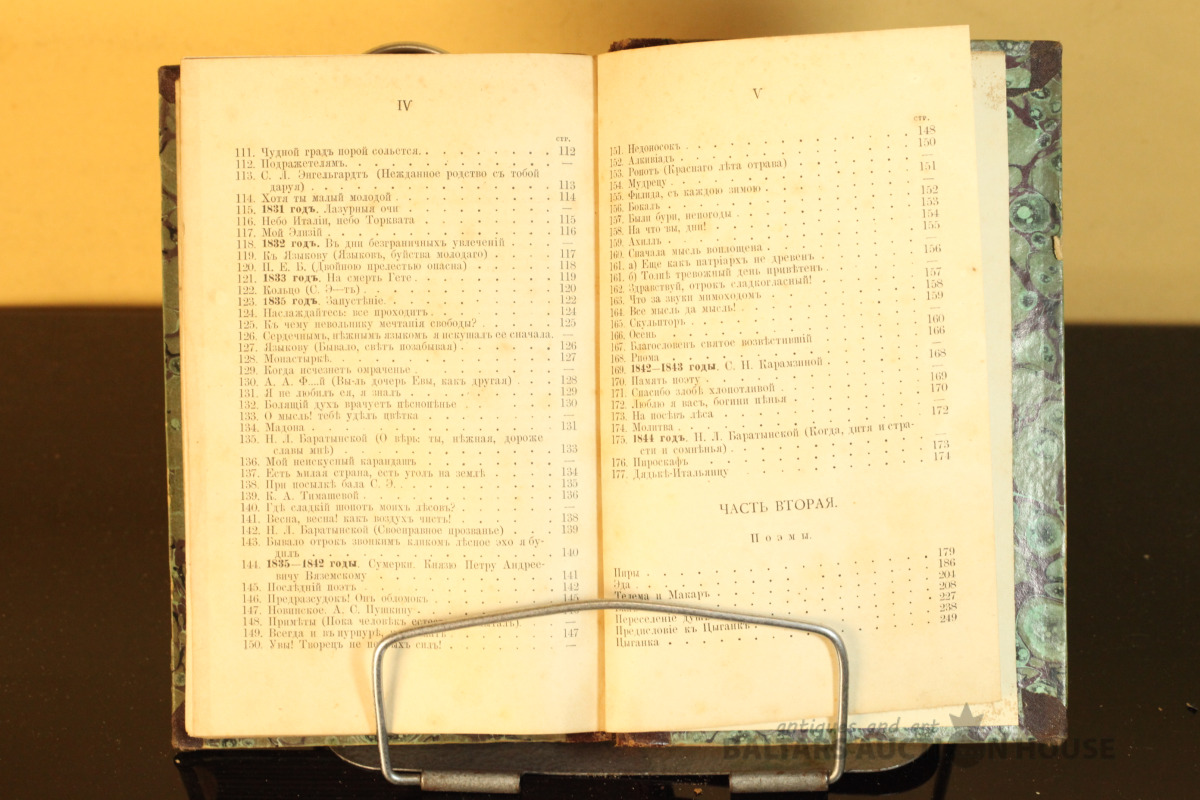 IV
стр.
111. Чудной градъ порой сольется. 112
112. Подражателямъ. —
113. С. Л. Энгельгардтъ (Нежданное родство съ тобой
даруя) 113
114. Хотя ты малый молодой 114
115. 1831 годъ. Лазурныя очи —
116. Небо Италіи, небо Торквата 115
117. Мой Элизій 116
118. 1832 годъ. Въ дни безграничныхъ увлеченій —
119. Къ Языкову (Языковъ, буйства молодаго) 117
120. Н. Е. Б. (Двойною прелестью опасна) 118
121. 1833 годъ. На смерть Гете 119
122. Кольцо (С. Э—тъ) 120
123. 1835 годъ. Запустѣніе. 122
124. Наслаждайтесь: все проходитъ 124
125. Къ чему невольнику мечтанія свободы? 125
126. Сердечнымъ, нѣжнымъ языкомъ я искушалъ ее сначала. —
127. Языкову (Бывало, свѣтъ позабывая) 126
128. Монастыркѣ. 127
129. Когда исчезнетъ омраченье —
130. А. А. Ф—й (Вы-ль дочерь Евы, какъ другая) 128
131. Я не любилъ ея, я зналъ 129
132. Болящій духъ врачуетъ пѣснопѣнье 130
133. О мысль! тебѣ удѣлъ цвѣтка —
134. Мадона 131
135. Н. Л. Баратынской (О вѣрь: ты, нѣжная, дороже
славы мнѣ) 133
136. Мой неискусный карандашъ —
137. Есть милая страна, есть уголъ на землѣ 134
138. При посылкѣ бала С. Э. 135
139. К. А. Тимашевой 136
140. Гдѣ сладкій шопотъ моихъ лѣсовъ? —
141. Весна, весна! какъ воздухъ чистъ! 138
142. Н. Л. Баратынской (Своенравное прозванье) 139
143. Бывало отрокъ звонкимъ кликомъ лѣсное эхо я бу-
дилъ 140
144. 1835—1842 годы. Сумерки. Князю Петру Андрее-
вичу Вяземскому 141
145. Послѣдній поэтъ 142
146. Предразсудокъ! Онъ обломокъ 145
147. Новинское. А. С. Пушкину —
148. Примѣты (Пока человѣкъ —
149. Всегда и въ пурпурѣ, 147
150. Увы! Творецъ не силъ! —
V
стр.
151. Недоносокъ 148
152. Алкивіадъ 150
153. Ропотъ (Краснаго лѣта отрава) —
154. Мудрецу 151
155. Филида, съ каждою зимою —
156. Бокалъ 152
157. Были бури, непогоды 153
158. На что вы, дни! 154
159. Ахиллъ 155
160. Сначала мысль воплощена —
161. а) Еще какъ патріархъ не древенъ 156
161. б) Толпѣ тревожный день привѣтенъ —
162. Здравствуй, отрокъ сладкогласный! 157
163. Что за звуки мимоходомъ 158
164. Все мысль да мысль! 159
165. Скульпторъ —
166. Осень 160
167. Благословенъ святое возвѣстившій 166
168. Риѳма —
169. 1842—1843 годы. С. Н. Карамзиной 168
170. Память поэту —
171. Спасибо злобѣ хлопотливой 169
172. Люблю я васъ, богини пѣнья 170
173. На посѣвъ лѣса —
174. Молитва 172
175. 1844 годъ. Н. Л. Баратынской (Когда, дитя и стра-
сти и сомнѣнья) —
176. Пироскафъ 173
177. Дядькѣ-Итальянцу 174
ЧАСТЬ ВТОРАЯ.
Поэмы.
Пиры 179
Эда 186
Телема и Макаръ 204
208
Переселеніе душъ 227
Предисловіе къ Цыганкѣ 238
Цыганка 249
antiques and art
BALTARS AUCTION HOUSE